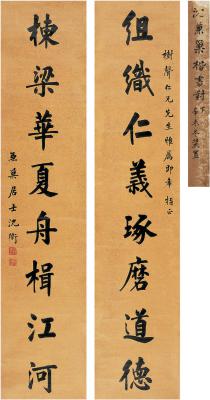 組織仁義琢磨道德
樹聲仁兄先生雅屬即希指正
棟梁華夏舟楫江河
兼巢居士沈衛
沈兼巢楷書對